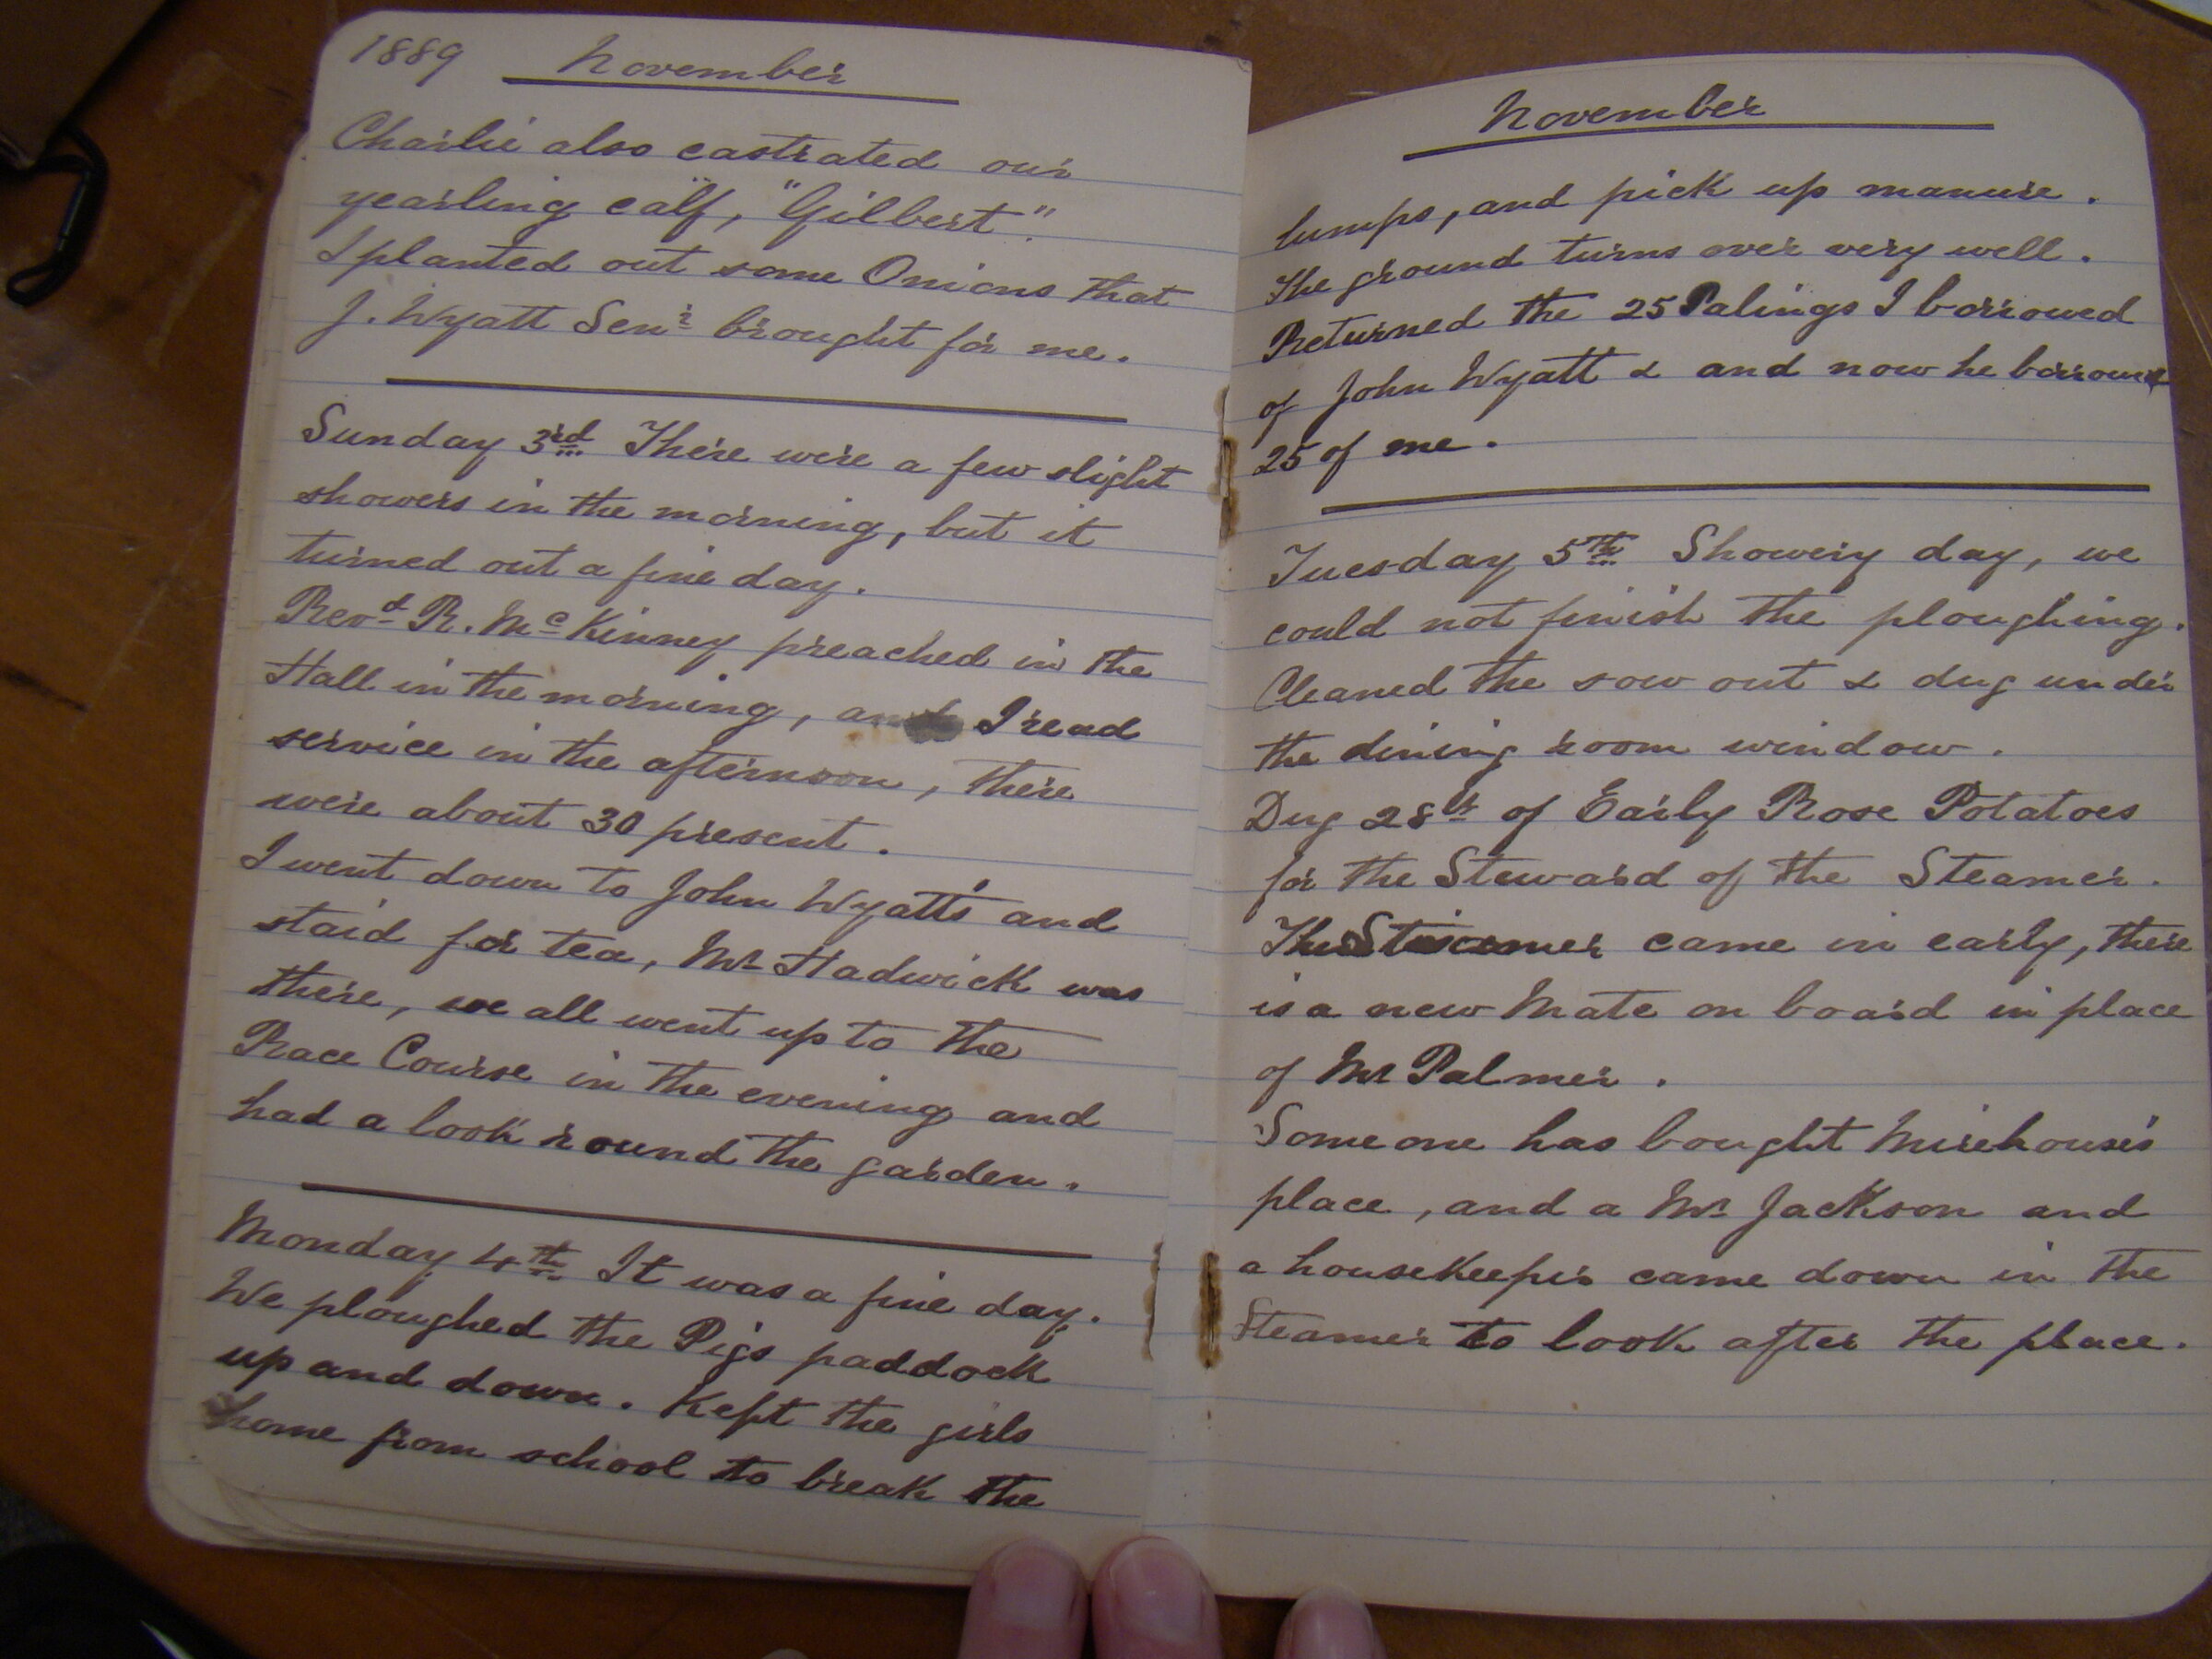 1889 November
Charlie also castrated our
yearling calf, "Gilbert".
I planted out some Onions that
J. Wyatt Senr brought for me.
Sunday 3rd There were a few slight
showers in the morning, but it
turned out a fine day.
Revd R. McKinney preached in the
Hall in the morning, and I read
service in the afternoon, there
were about 30 present.
I went down to John Wyatt's and
staid for tea, Mr Hadwick was
there, we all went up to the
Race Course in the evening and
had a look round the garden.
Monday 4th It was a fine day.
We ploughed the Pigs paddock
up and down. Kept the girls
home from school to break the
November
lumps, and pick up manure.
The ground turns over very well.
Returned the 25 Palings I borrowed
of John Wyatt & and now he borrows
25 of me.
Tuesday 5th Showery day, we
could not finish the ploughing.
Cleaned the sow out & dug under
the dining room window.
Dug 28lb of Early Rose Potatoes
for the Steward of the Steamer.
The Steamer came in early, there
is a new Mate on board in place
of Mr Palmer.
Some one has bought Mirehouse's
place, and a Mr Jackson and
a housekeeper came down in the
Steamer to look after the place.